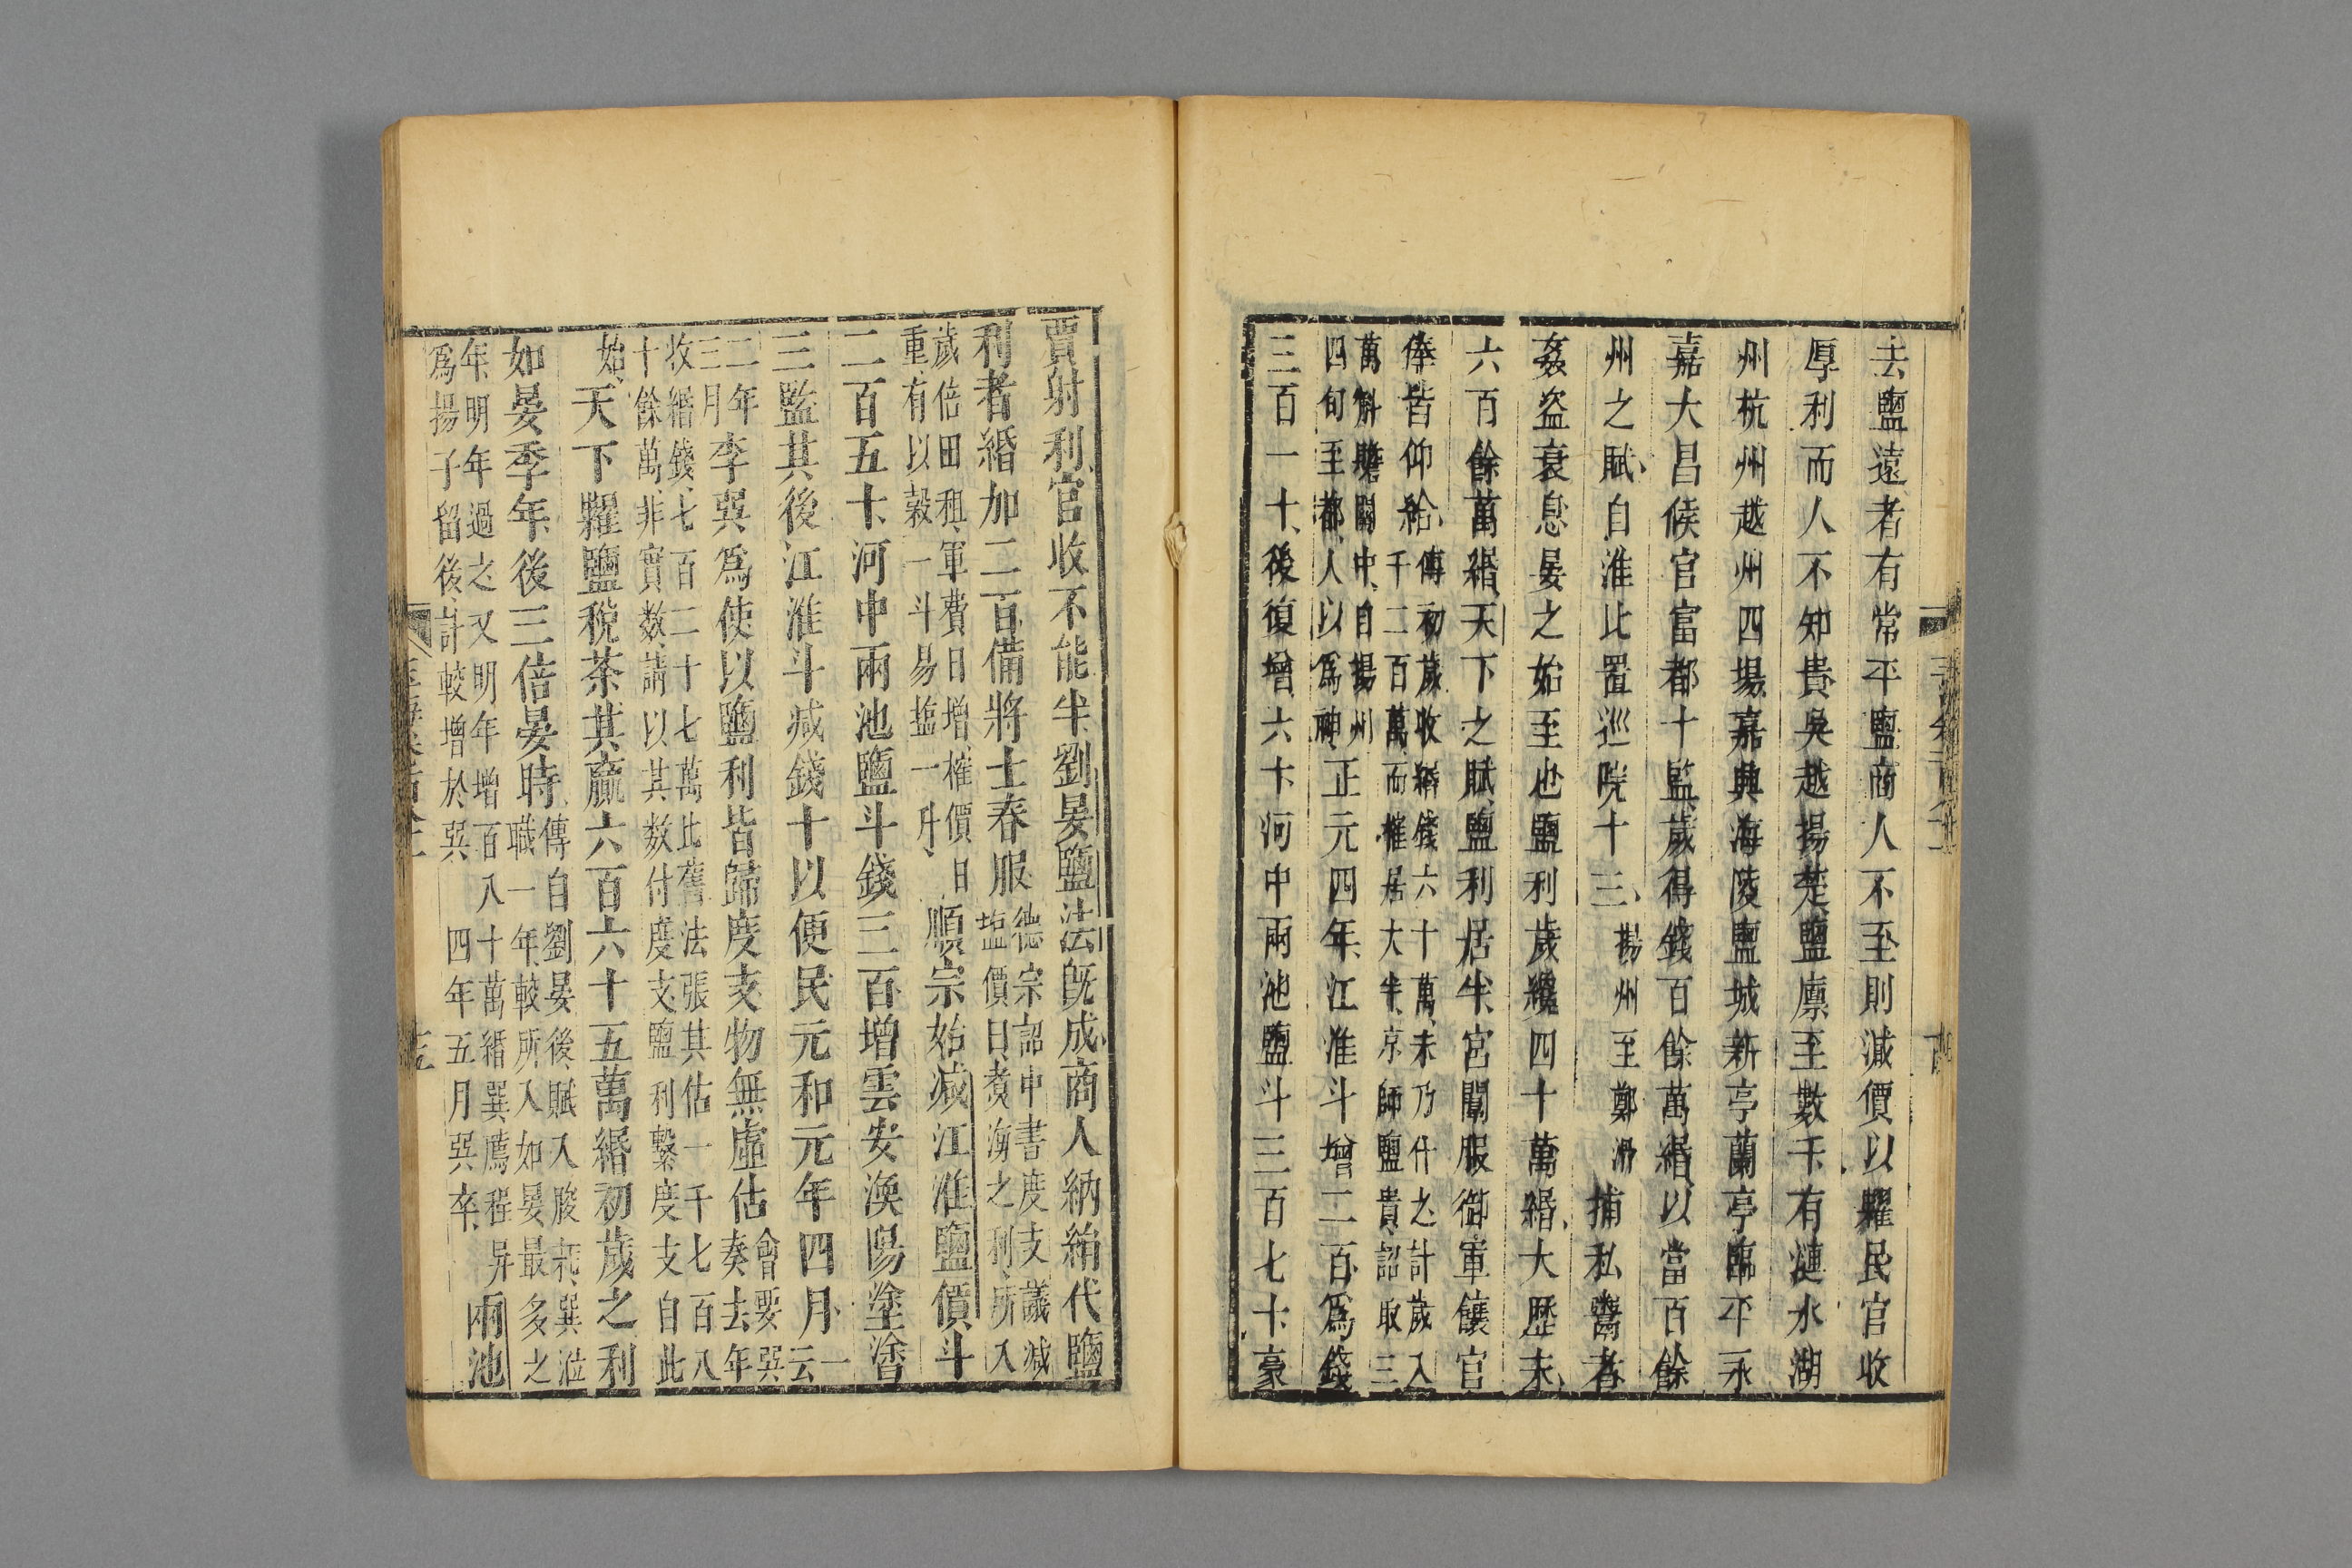 去鹽遠者有常平鹽商人不至則減價以糶民官收
厚利而人不知貴吳越揚楚鹽廪至數千有漣水湖
州杭州越州四場嘉興海陵鹽城新亭蘭亭臨平永
嘉大昌候官富都十監歲得錢百餘萬緡以當百餘
州之賦自淮北置巡院十三揚州至鄭滑捕私鬻者
姦盜衰息晏之始至也鹽利歲纔四十萬緡大歷末
六百餘萬緡天下之賦鹽利居半宮闈服御軍饟官
俸皆仰給傳初歲收緡錢六十萬末乃什之計歲入
千二百萬而榷居大半京師鹽貴詔取三
萬斛贍關中自揚州
四旬至都人以爲神正元四年江淮斗增二百爲錢
三百一十後復增六十河中兩池鹽斗三百七十豪
賈射利官收不能半劉晏鹽法旣成商人納絹代鹽
利者緡加二百備將士春服德宗詔中書度支議減
塩價曰煑海之利所入
歲倍田租軍費日增榷價日
重有以榖一斗易塩一升順宗始減江淮鹽價斗
二百五十河中兩池鹽斗錢三百增雲安渙陽塗㵛
三監其後江淮斗减錢十以便民元和元年四月一
云
二年
三月李巽爲使以鹽利皆歸度支物無虛估會要巽
奏去年
收緡錢七百二十七萬比舊法張其估一千七百八
十餘萬非實数請以其数付度支鹽利繋度支自此
始天下糶鹽稅茶其贏六百六十五萬緡初歲之利
如晏季年後三倍晏時傳自劉晏後賦入朘耗巽涖
職一年較所入如晏最多之
年明年過之又明年增百八十萬緡巽薦程异
爲揚子留後計較增於巽四年五月巽卒兩池